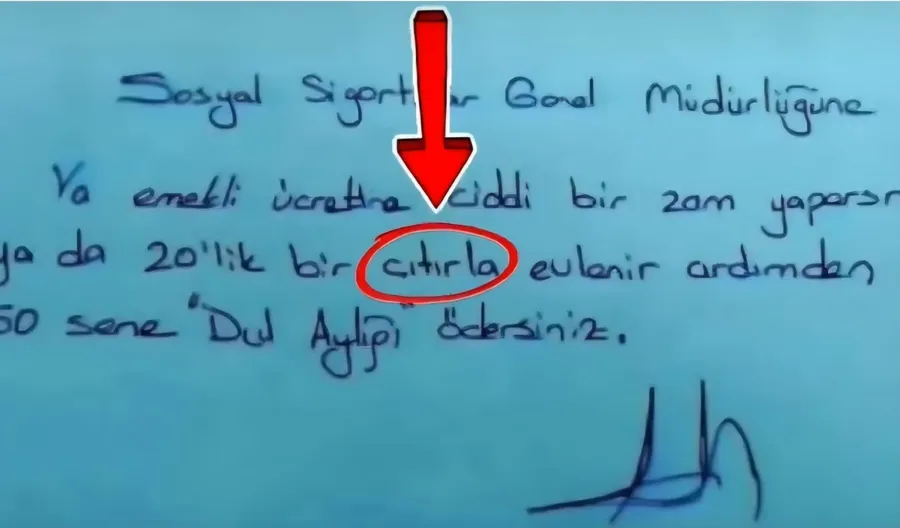 Sosyal Sigort ar Genel Müdürlüğüne
Ya emekli ücretine ciddi bir zam yaparsı
ya da 20'lik bir çıtırla evlenir ardımdan
50 sene "Dul Aylığı" ödersiniz.